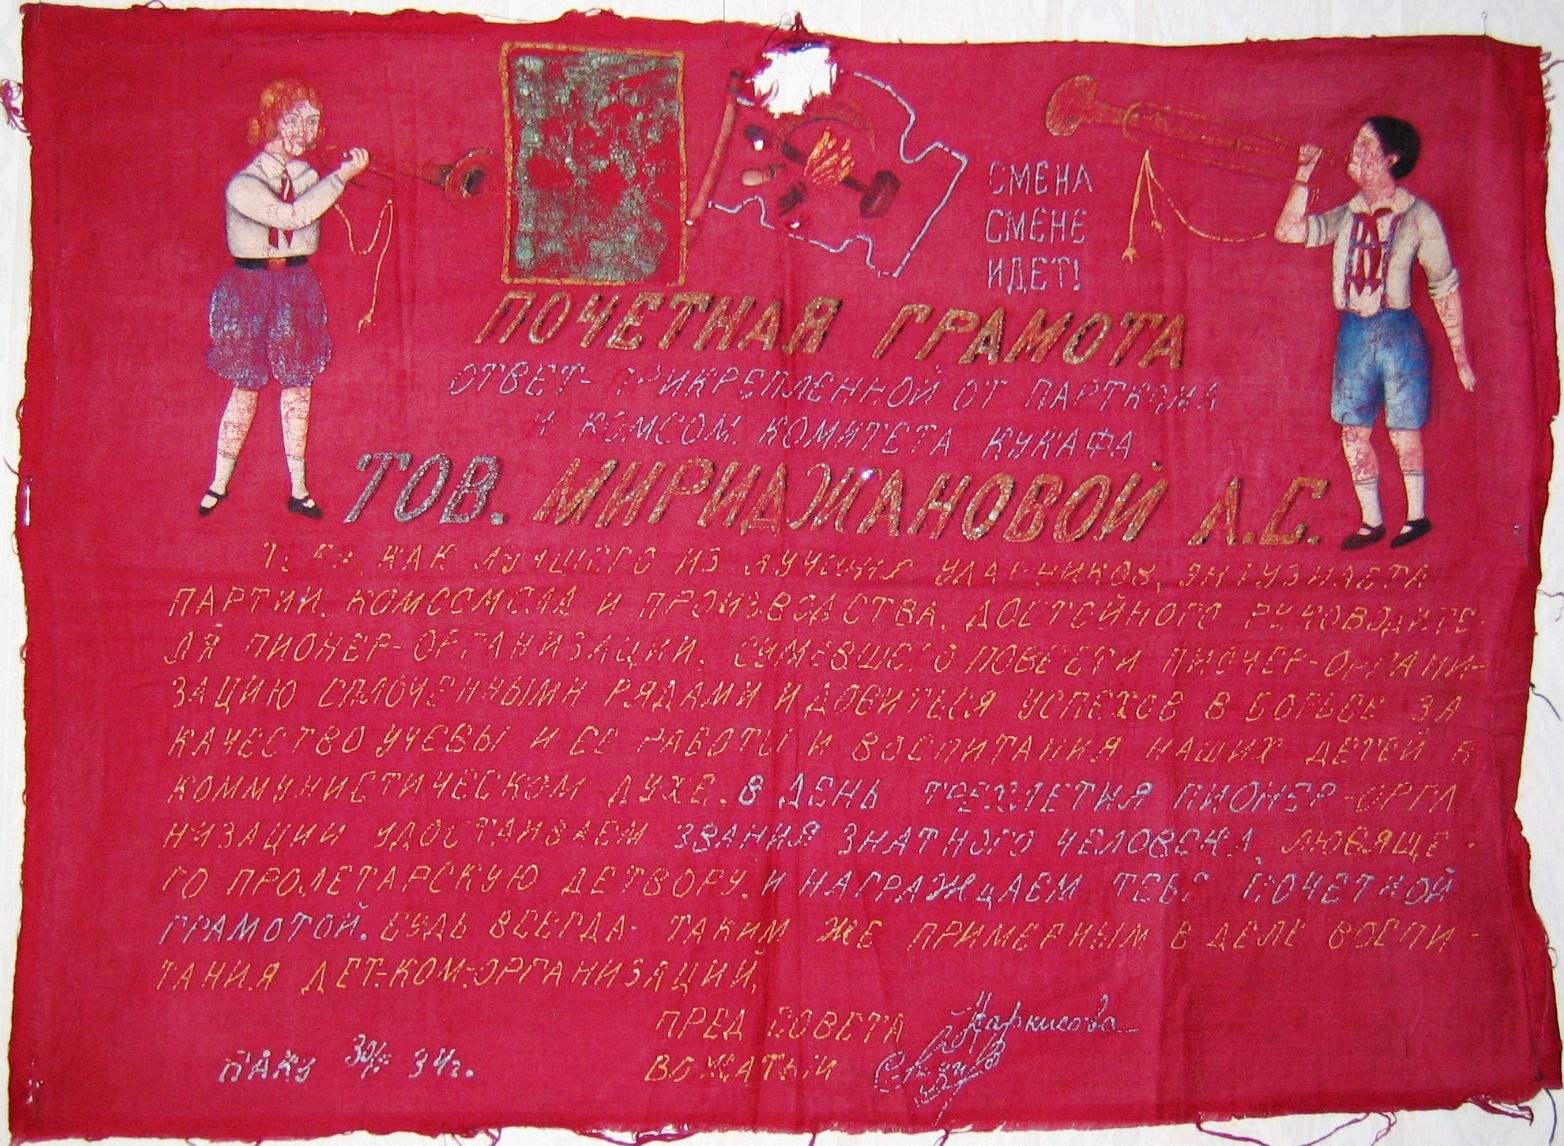 СМЕНА
СМЕНЕ
ИДЕТ!
ПОЧЕТНАЯ ГРАМОТА
ОТВЕТ- ПРИКРЕПЛЕННОЙ ОТ ПАРТКОМА
И КОМСОМ. КОМИТЕТА КУКАФА
ТОВ. МИРИДЖАНОВОЙ А.С.
КАК ЛУЧШЕГО ИЗ ЛУЧШИХ УДАРНИКОВ, ЭНТУЗИАСТА
ПАРТИИ, КОМСОМОЛА И ПРОИЗВОДСТВА, ДОСТОЙНОГО РУКОВОДИТЕ
ЛЯ ПИОНЕР-ОРГАНИЗАЦИИ, СУМЕВШЕГО ПОВЕСТИ ПИОНЕР-ОРГАНИ-
ЗАЦИЮ СПЛОЧЕННЫМИ РЯДАМИ И ДОБИТЬСЯ УСПЕХОВ В БОРЬБЕ ЗА
КАЧЕСТВО УЧЕБЫ И ЕЕ РАБОТЫ И ВОСПИТАНИЯ НАШИХ ДЕТЕЙ В
КОММУНИСТИЧЕСКОМ ДУХЕ. В ДЕНЬ ТРЕХЛЕТИЯ ПИОНЕР-ОРГА
НИЗАЦИИ УДОСТАИВАЕМ ЗВАНИЯ ЗНАТНОГО ЧЕЛОВЕКА, ЛЮБЯЩЕ-
ГО ПРОЛЕТАРСКУЮ ДЕТВОРУ, И НАГРАЖДАЕМ ТЕБЯ ПОЧЕТНОЙ
ГРАМОТОЙ. БУДЬ ВСЕГДА ТАКИМ ЖЕ ПРИМЕРНЫМ В ДЕЛЕ ВОСПИ-
ТАНИЯ ДЕТ-КОМ-ОРГАНИЗАЦИИ,
ПРЕД СОВЕТА
ВОЖАТЫЙ
БАКУ 34г.